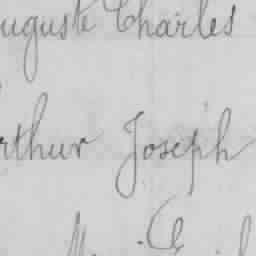 uguste Charles
rthur Joseph